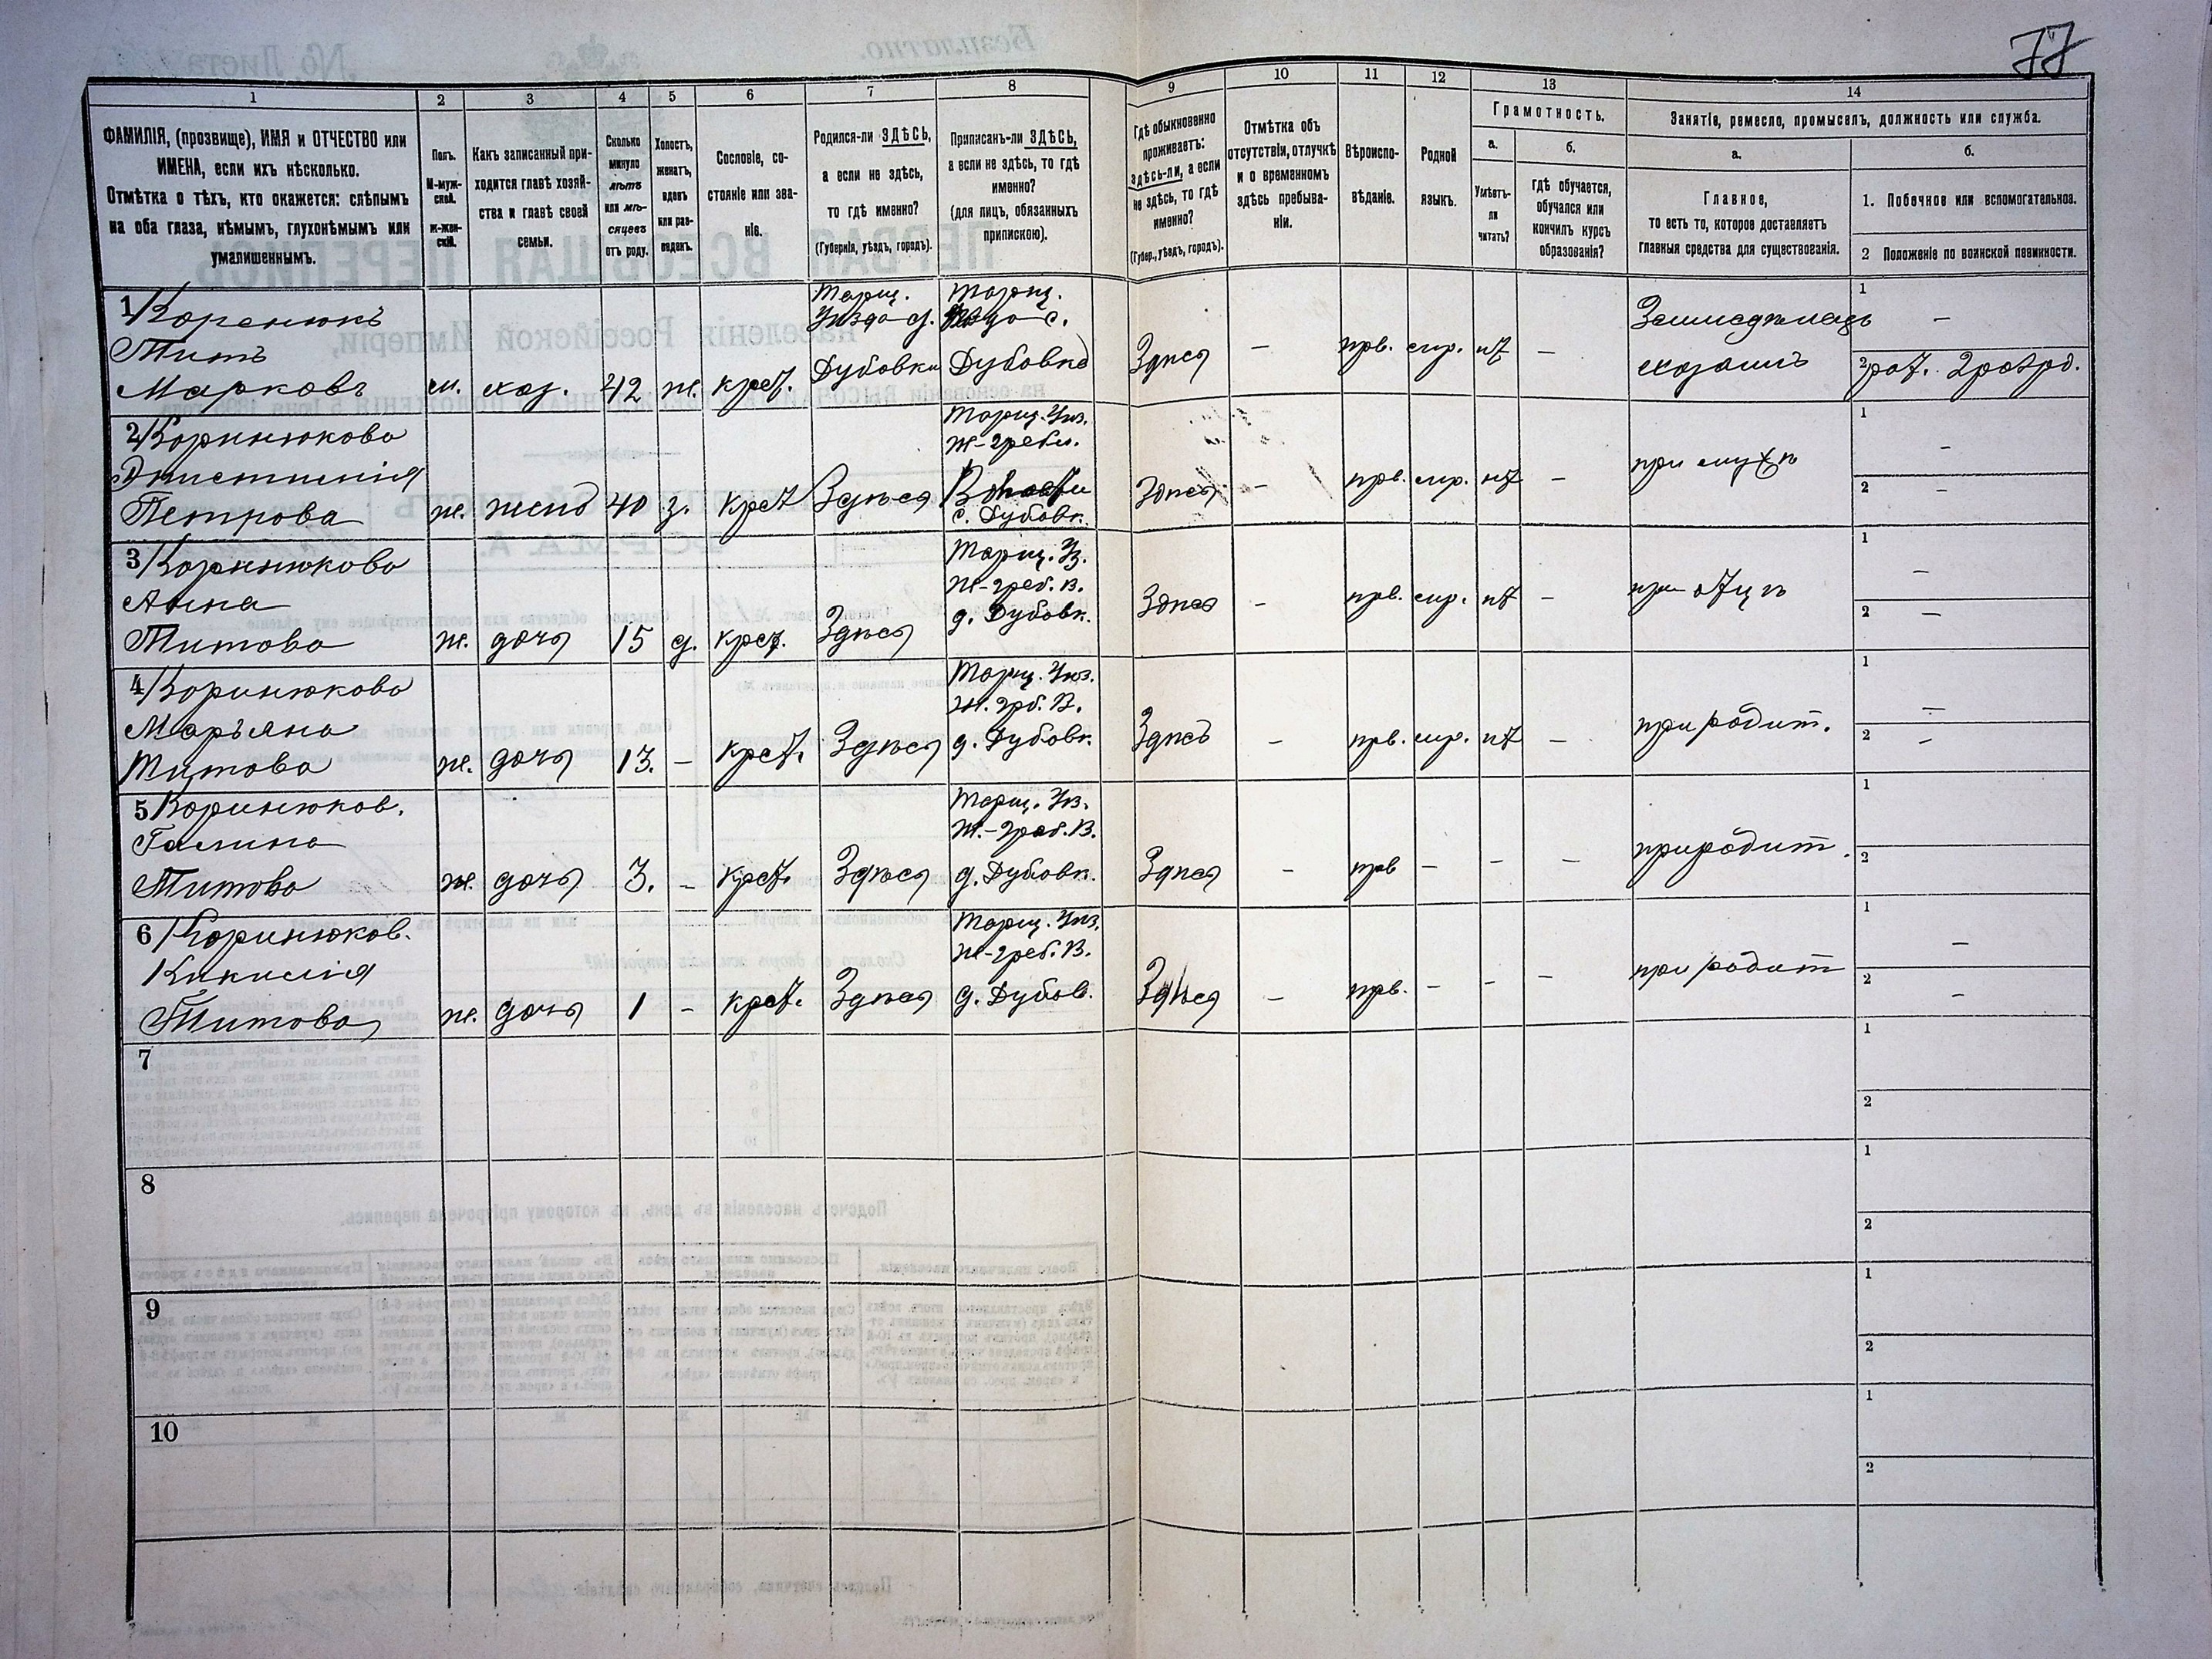 77
1 2 3 4 5 6 7 8 9 10 11 12 13 14
ФАМИЛІЯ, (прозвище), ИМЯ и ОТЧЕСТВО или
ИМЕНА, если ихъ нѣсколько.
Отмѣтка о тѣхъ, кто окажется: слѣпымъ
на оба глаза, нѣмымъ, глухонѣмымъ или
умалишеннымъ.
Полъ.
М-муж-
ской.
ж-жен-
скій.
Какъ записанный при-
ходится главѣ хозяй-
ства и главѣ своей
семьи.
Сколько
минуло
лѣтъ
или мѣ-
сяцевъ
отъ роду.
Холостъ,
женатъ,
вдовъ
или раз-
веденъ.
Сословіе, со-
стояніе или зва-
ніе.
Родился-ли ЗДѢСЬ,
а если не здѣсь,
то гдѣ именно?
(Губернія, уѣздъ, городъ).
Приписанъ-ли ЗДѢСЬ,
а если не здѣсь, то гдѣ
именно?
(для лицъ, обязанныхъ
припискою).
Гдѣ обыкновенно
проживаетъ:
здѣсь-ли, а если
не здѣсь, то гдѣ
именно?
(Губер., уѣздъ, городъ).
Отмѣтка объ
отсутствіи, отлучкѣ
и о временномъ
здѣсь пребыва-
ніи.
Вѣроиспо-
вѣданіе.
Родной
языкъ.
Грамотность.
а.
Умѣетъ-
ли
читать?
б.
Гдѣ обучается,
обучался или
кончилъ курсъ
образованія?
Занятіе, ремесло, промыселъ, должность или служба.
а.
Главное,
то есть то, которое доставляетъ
главныя средства для существованія.
б.
1. Побочное или вспомогательное.
2 Положеніе по воинской повинности.
1 Коренюкъ
Титъ
Марковъ
м. хоз. 42 ж. крест.
Таращ.
Дубовки
Таращ.
Дубовкѣ
Здѣсь – прв. мр. нт –
хозяинъ
1 –
2 рат. 2 разряд.
2 Коринюкова
Петрова
ж. жена 40 з. крест Здѣсь
Таращ. Уѣз.
ж-гребл.
с. Дубовк.
Здѣсь – прв. мр. нт –
при мужѣ
1 –
2 –
3 Коринюкова
Анна
Титова
ж. дочь 15 д. крест. Здѣсь
Таращ. Уз.
ж-греб. в.
д. Дубовк.
Здѣсь – прв. мр. нт –
при отцѣ
1 –
2 –
4 Коринюкова
Марьяна
Титова
ж. дочь 13. – крест. Здѣсь
Таращ. Уѣз.
ж. грб. В.
д. Дубовк.
Здѣсь – прв. мр. нт –
при родит.
1 –
2 –
5 Коринюков.
Галина
Титова
ж. дочь 3. – крест. Здѣсь
Таращ. Уѣ.
ж.-греб. В.
д. Дубовк.
Здѣсь – прв – – –
при родит.
1
2
6 Коринюков.
Кикилія
Титова
ж. дочь 1 – крест. Здѣсь
Таращ. Уѣз.
ж-греб. В.
д. Дубов.
Здѣсь – прв. – – –
при родит
1 –
2 –
7
1
2
8
1
2
9
1
2
10
1
2